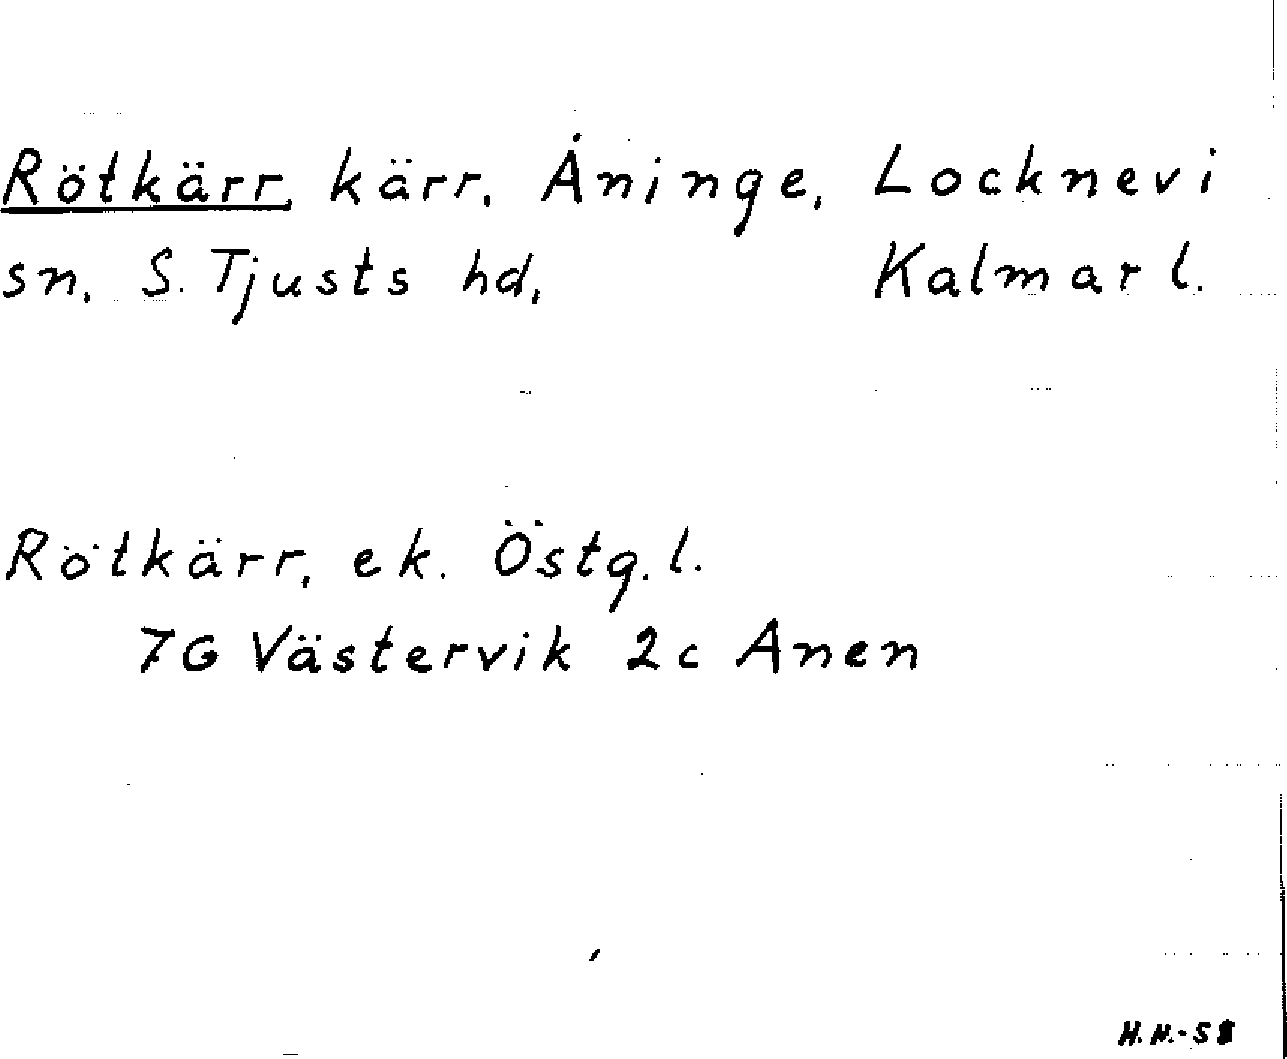 Rötkärr, kärr, Åninge, Locknevi
sn, S. Tjusts hd, Kalmar l.
Rötkärr, ek. Östg. l.
7G Västervik 2c Anen